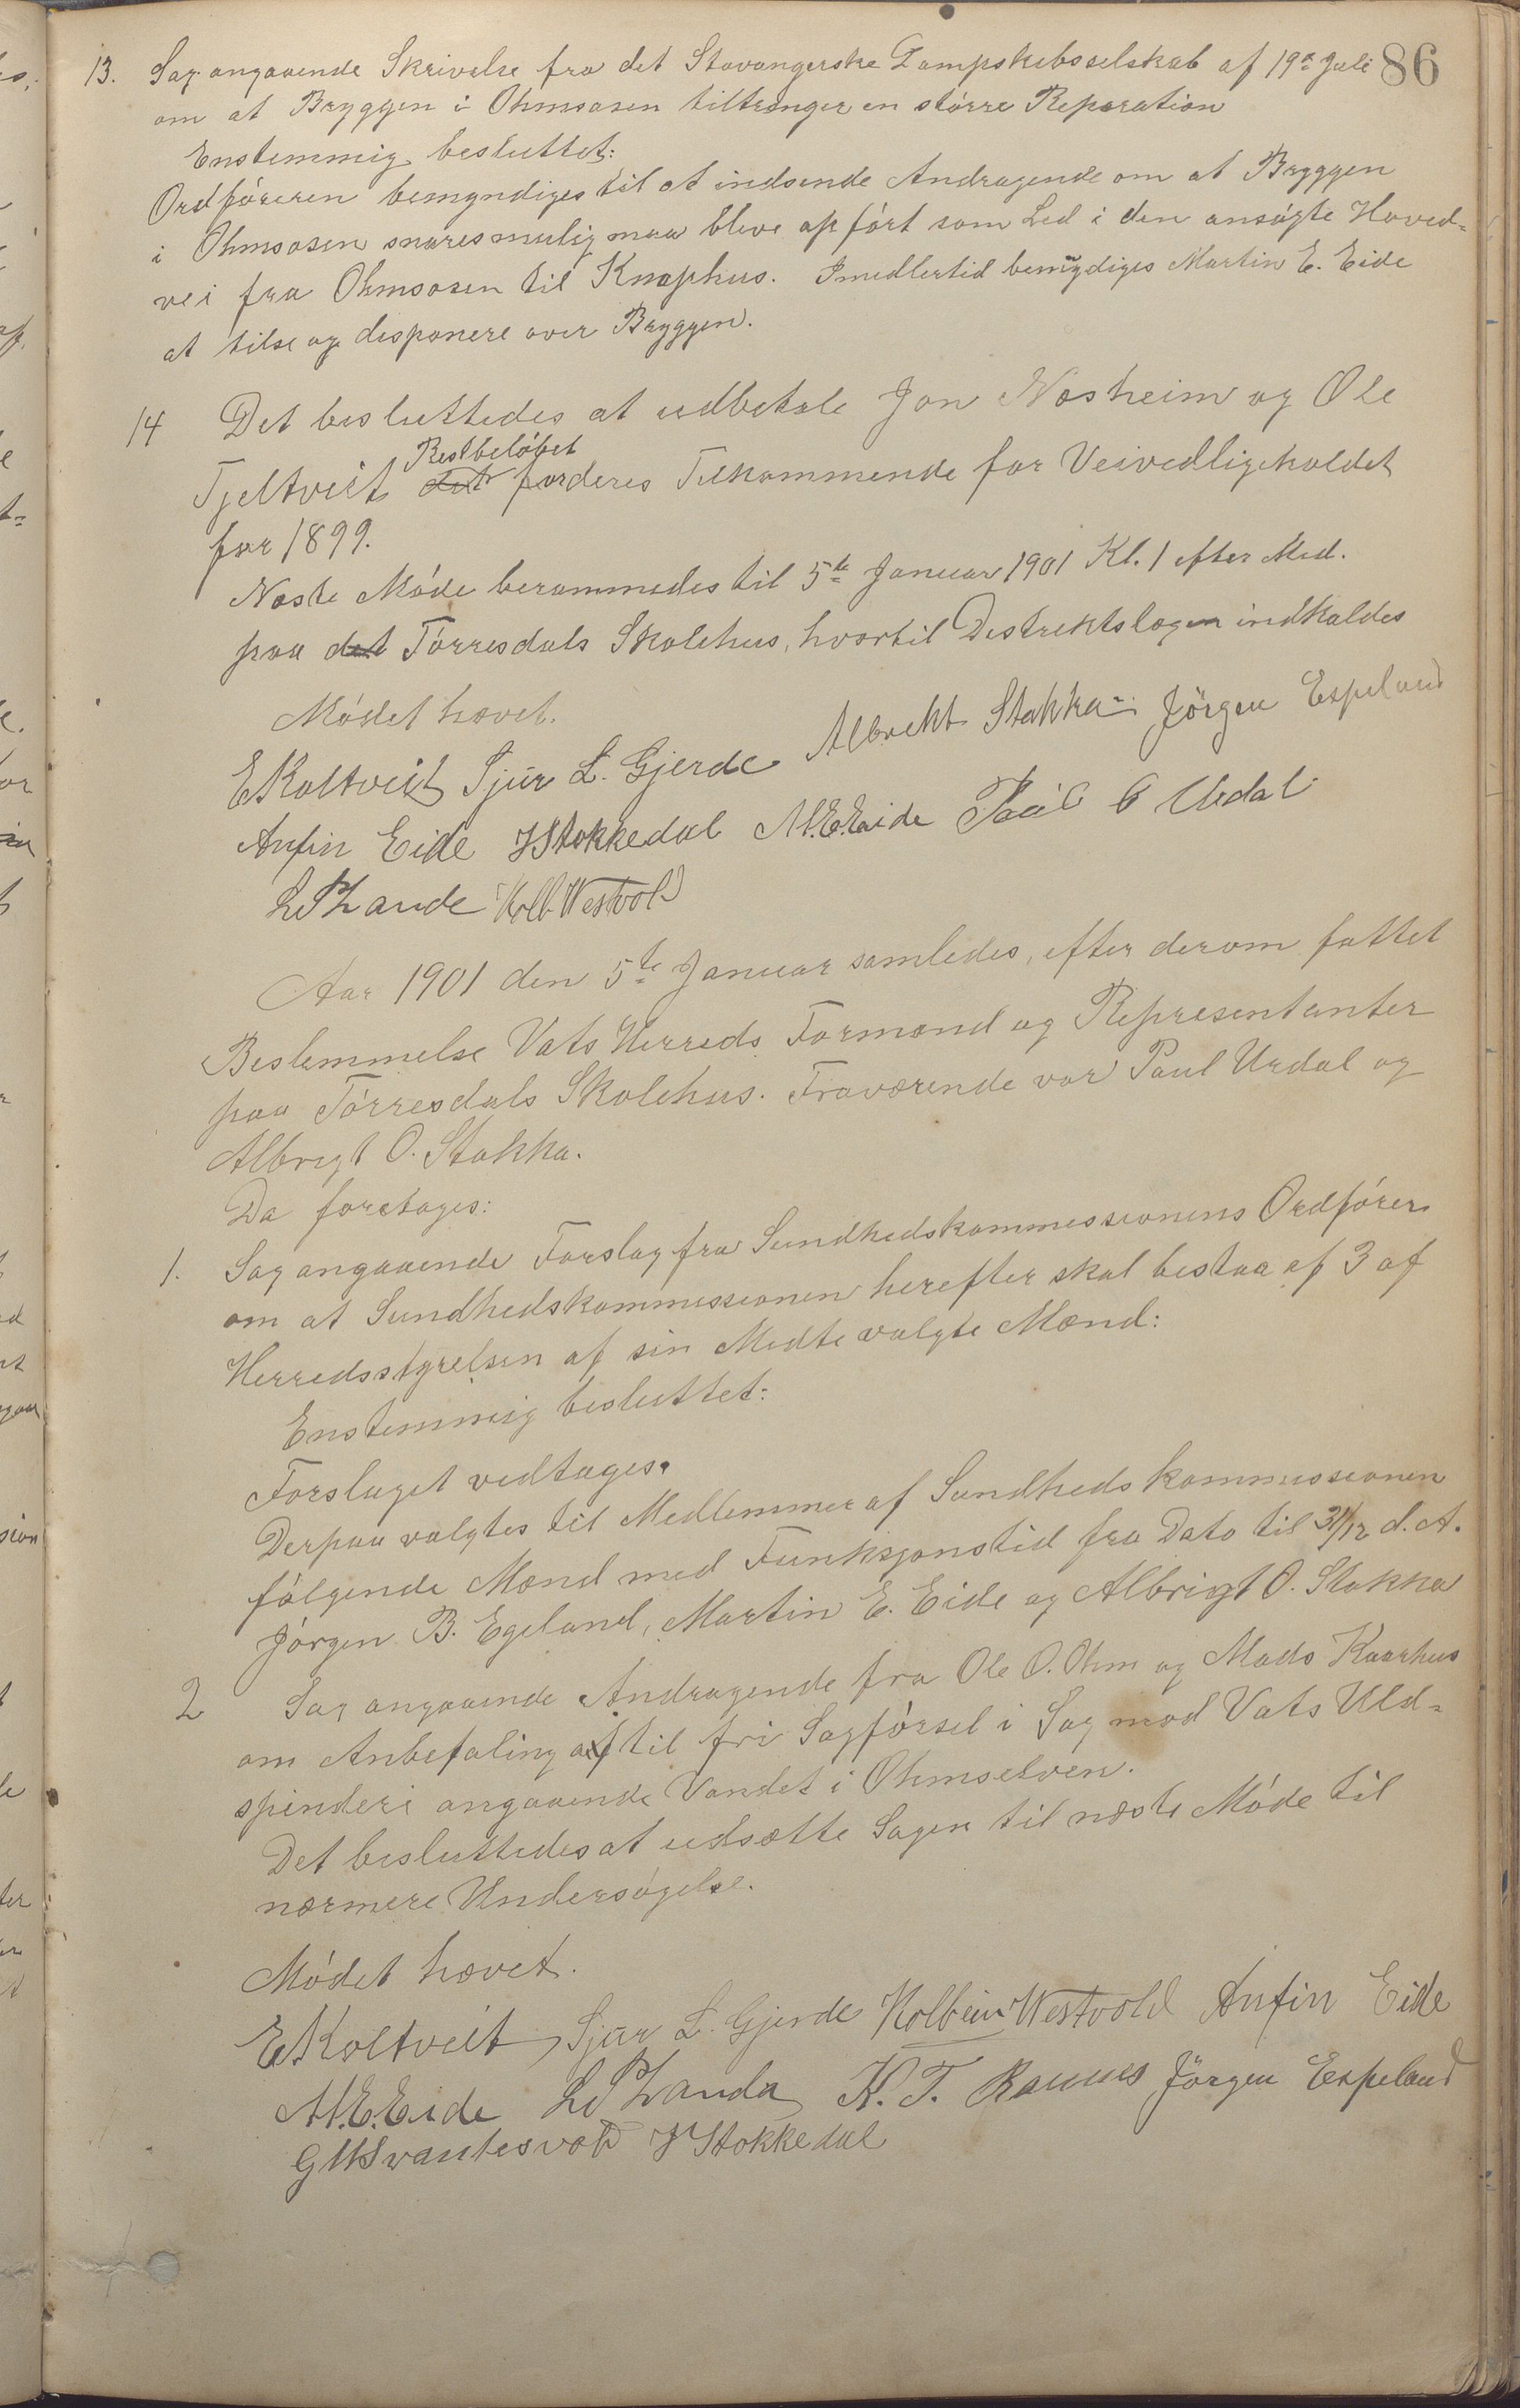 86
13. Sag angaaende Skrivelse fra det Stavangerske Dampskibsselskab af 19de Juli
om at Bryggen i Ohmsosen tiltrenger en større Reparation
Enstemmig besluttet:
Ordføreren bemyndiges til at indsende Andragende om at Bryggen
i Ohmsosen snaresmulig maa bleve opført som Led i den ansøgte Hoved-
vei fra Ohmsosen til Knaphus. Imedlertid bemydiges Martin E. Eide
at tilse og disponere over Bryggen.
14 Det besluttedes at udbetale Jon Nosheim og Ole
Restbeløbet
Tjeltveit det for deres Tilkommende for Veivedligeholdet
for 1899.
Næste Møde berammedes til 5te Januar 1901 Kl. 1 efter Med.
paa det Tørresdals Skolehus, hvortil Destriktslægen indkaldes
Mødet hævet.
E Koltveit Sjur L. Gjerde Albrekt Stakka Jörgen Espeland
Anfin Eide J Stokkedal M.E. Eide Paål O Urdal
L P Lande Kolb Westvold
Aar 1901 den 5te Januar samledes, efter derom fattet
Beslemmelse Vats Herreds Formænd og Representanter
paa Tørresdals Skolehus. Fraværende var Paul Urdal og
Albregt O. Stakka.
Da foretoges:
1. Sag angaaende Forslag fra Sundhedskommessionens Ordfører
om at Sundhedskommessionen herefter skal bestaa af 3 af
Herredsstyrelsen af sin Midte valgte Mænd:
Enstemmig besluttet:
Forslaget vedtages.
Derpaa valgtes til Medlemmer af Sundhedskommissionen
følgende Mænd med Funksjonstid fra Dato til 31/12 d. A.
Jörgen B. Egeland, Martin E. Eide og Albrigt O. Stakka
2 Sag angaaende Andragende fra Ole O. Ohm og Mads Kaarhus
om Anbefaling af til fri Sagførsel i Sag mod Vats Uld-
spinderi angaaende Vandet i Ohmselven.
Det besluttedes at udsætte Sagen til næste Møde til
nærmere Undersøgelse.
Mødet hævet.
E Koltveit Sjur L. Gjerde Kolbein Westvold Anfin Eide
M.E. Eide L P Landa K. T. Rannes Jörgen Espeland
G M Svantesvold J Stokkedal